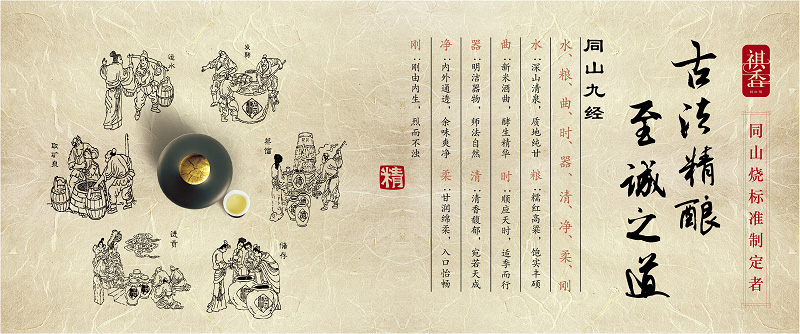 祺香
同山烧标准制定者
古法精酿
至诚之道
同山九经
水、粮、曲、时、器、清、净、柔、刚
水:深山清泉,质地纯甘
粮:糯红高粱,饱实丰硕
曲:新米酒曲,酵生精华
时:顺应天时,适季而行
器:明洁器物,师法自然
清:清香馥郁,宛若天成
净:内外通透,余味爽净
柔:甘润绵柔,入口怡畅
刚:刚由内生,烈而不浊
精
发酵
运水
蒸馏
取矿泉
储存
进贡